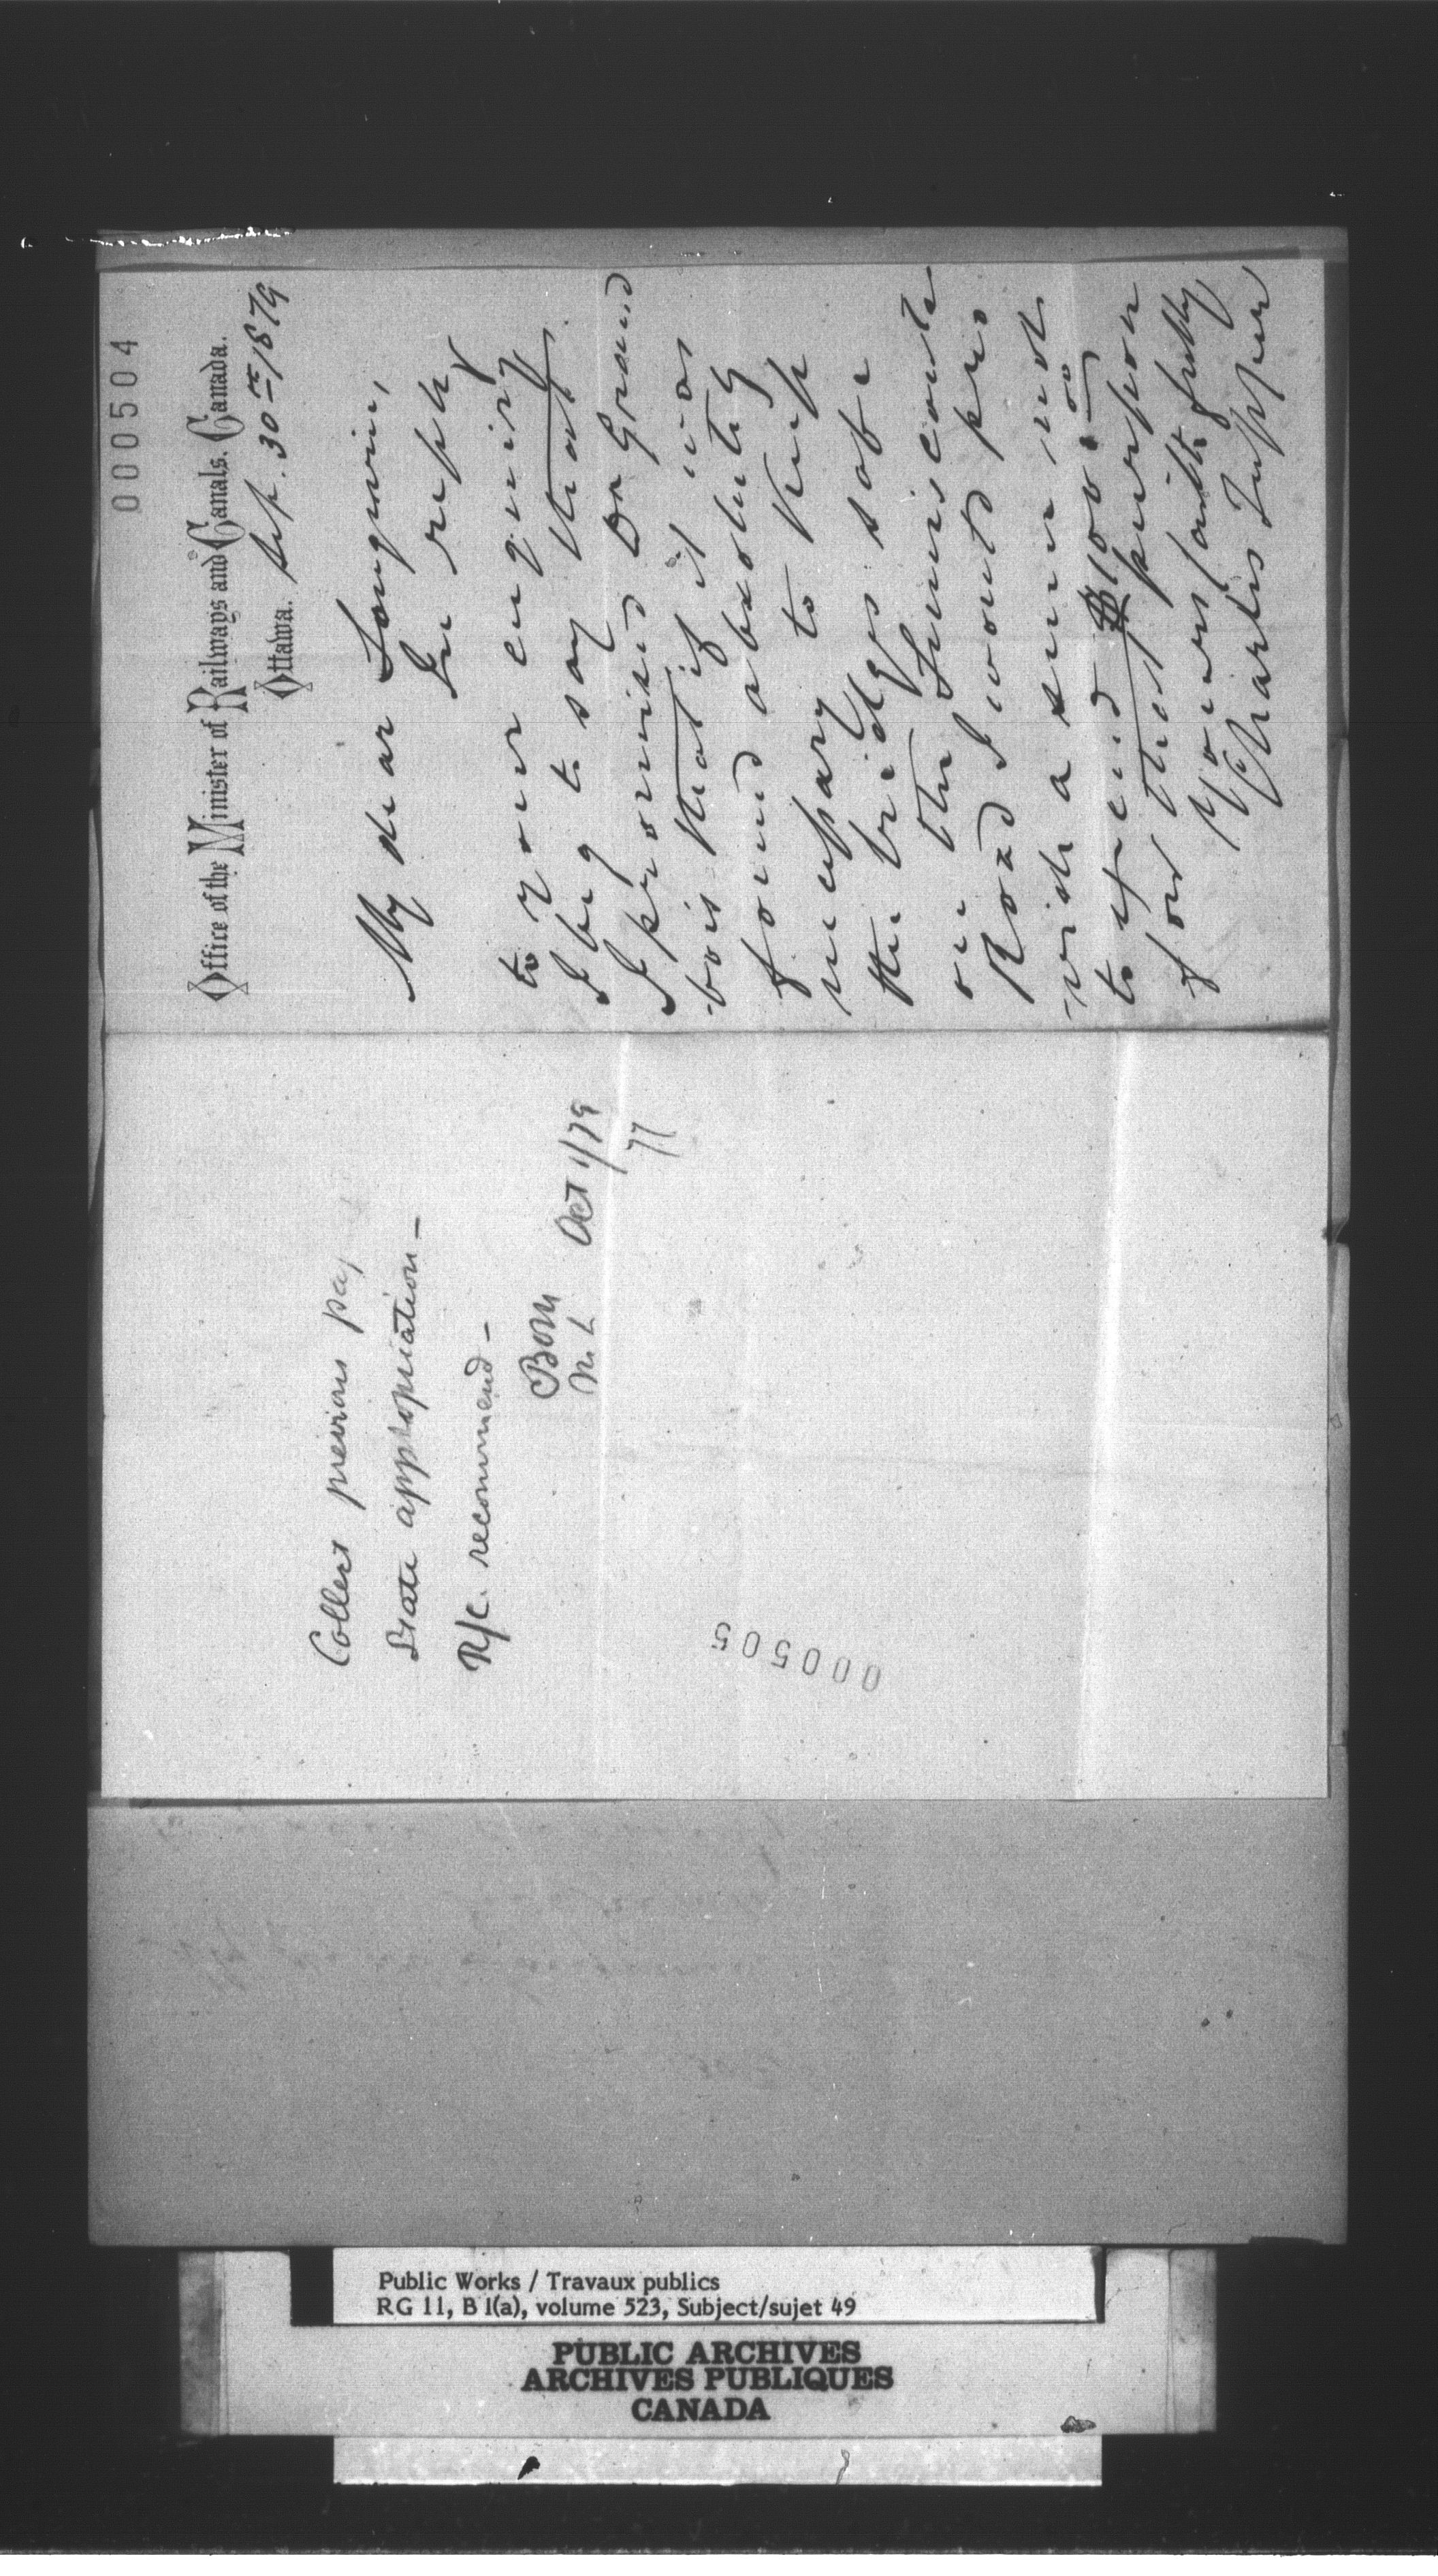 000504
Office of the Minister of Railways and Canals. Canada.
Ottawa. Sep. 30th 1879
My dear Langevin,
In reply
to your enquiry
I beg to say that
I promised De Grand
bois that if it was
found absolutely
necessary to keep
the bridges safe
on the Temiscouata
Road I would pro
vide a sum not
to exceed $100.00
for that purpose
Yours faithfully
Charles Tupper
Collect previous
State appropriation –
R/C. recommend –
Oct 1/79
77
000505
Public Works / Travaux publics
RG 11, B 1(a), volume 523, Subject/sujet 49
PUBLIC ARCHIVES
ARCHIVES PUBLIQUES
CANADA